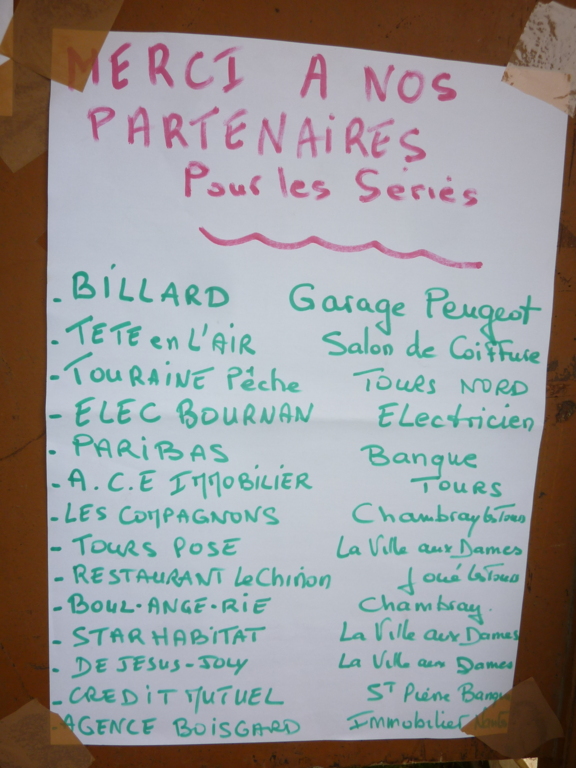 MERCI A NOS
PARTENAIRES
Pour les Séries
- BILLARD Garage Peugeot
- TETE en L'AIR Salon de Coiffure
- TOURAINE Pêche TOURS NORD
- ELEC BOURNAN ELectricien
- PARIBAS Banque
- A.C.E IMMOBILIER TOURS
- LES COMPAGNONS Chambray les Tours
- TOURS POSE La Ville aux Dames
- RESTAURANT Le Chinon Joué les Tours
- BOUL-ANGE-RIE Chambray.
- STAR HABITAT La Ville aux Dames
- DE JESUS-JOLY La Ville aux Dames
- CREDIT MUTUEL ST Pierre
- AGENCE BOISGARD Immobilier